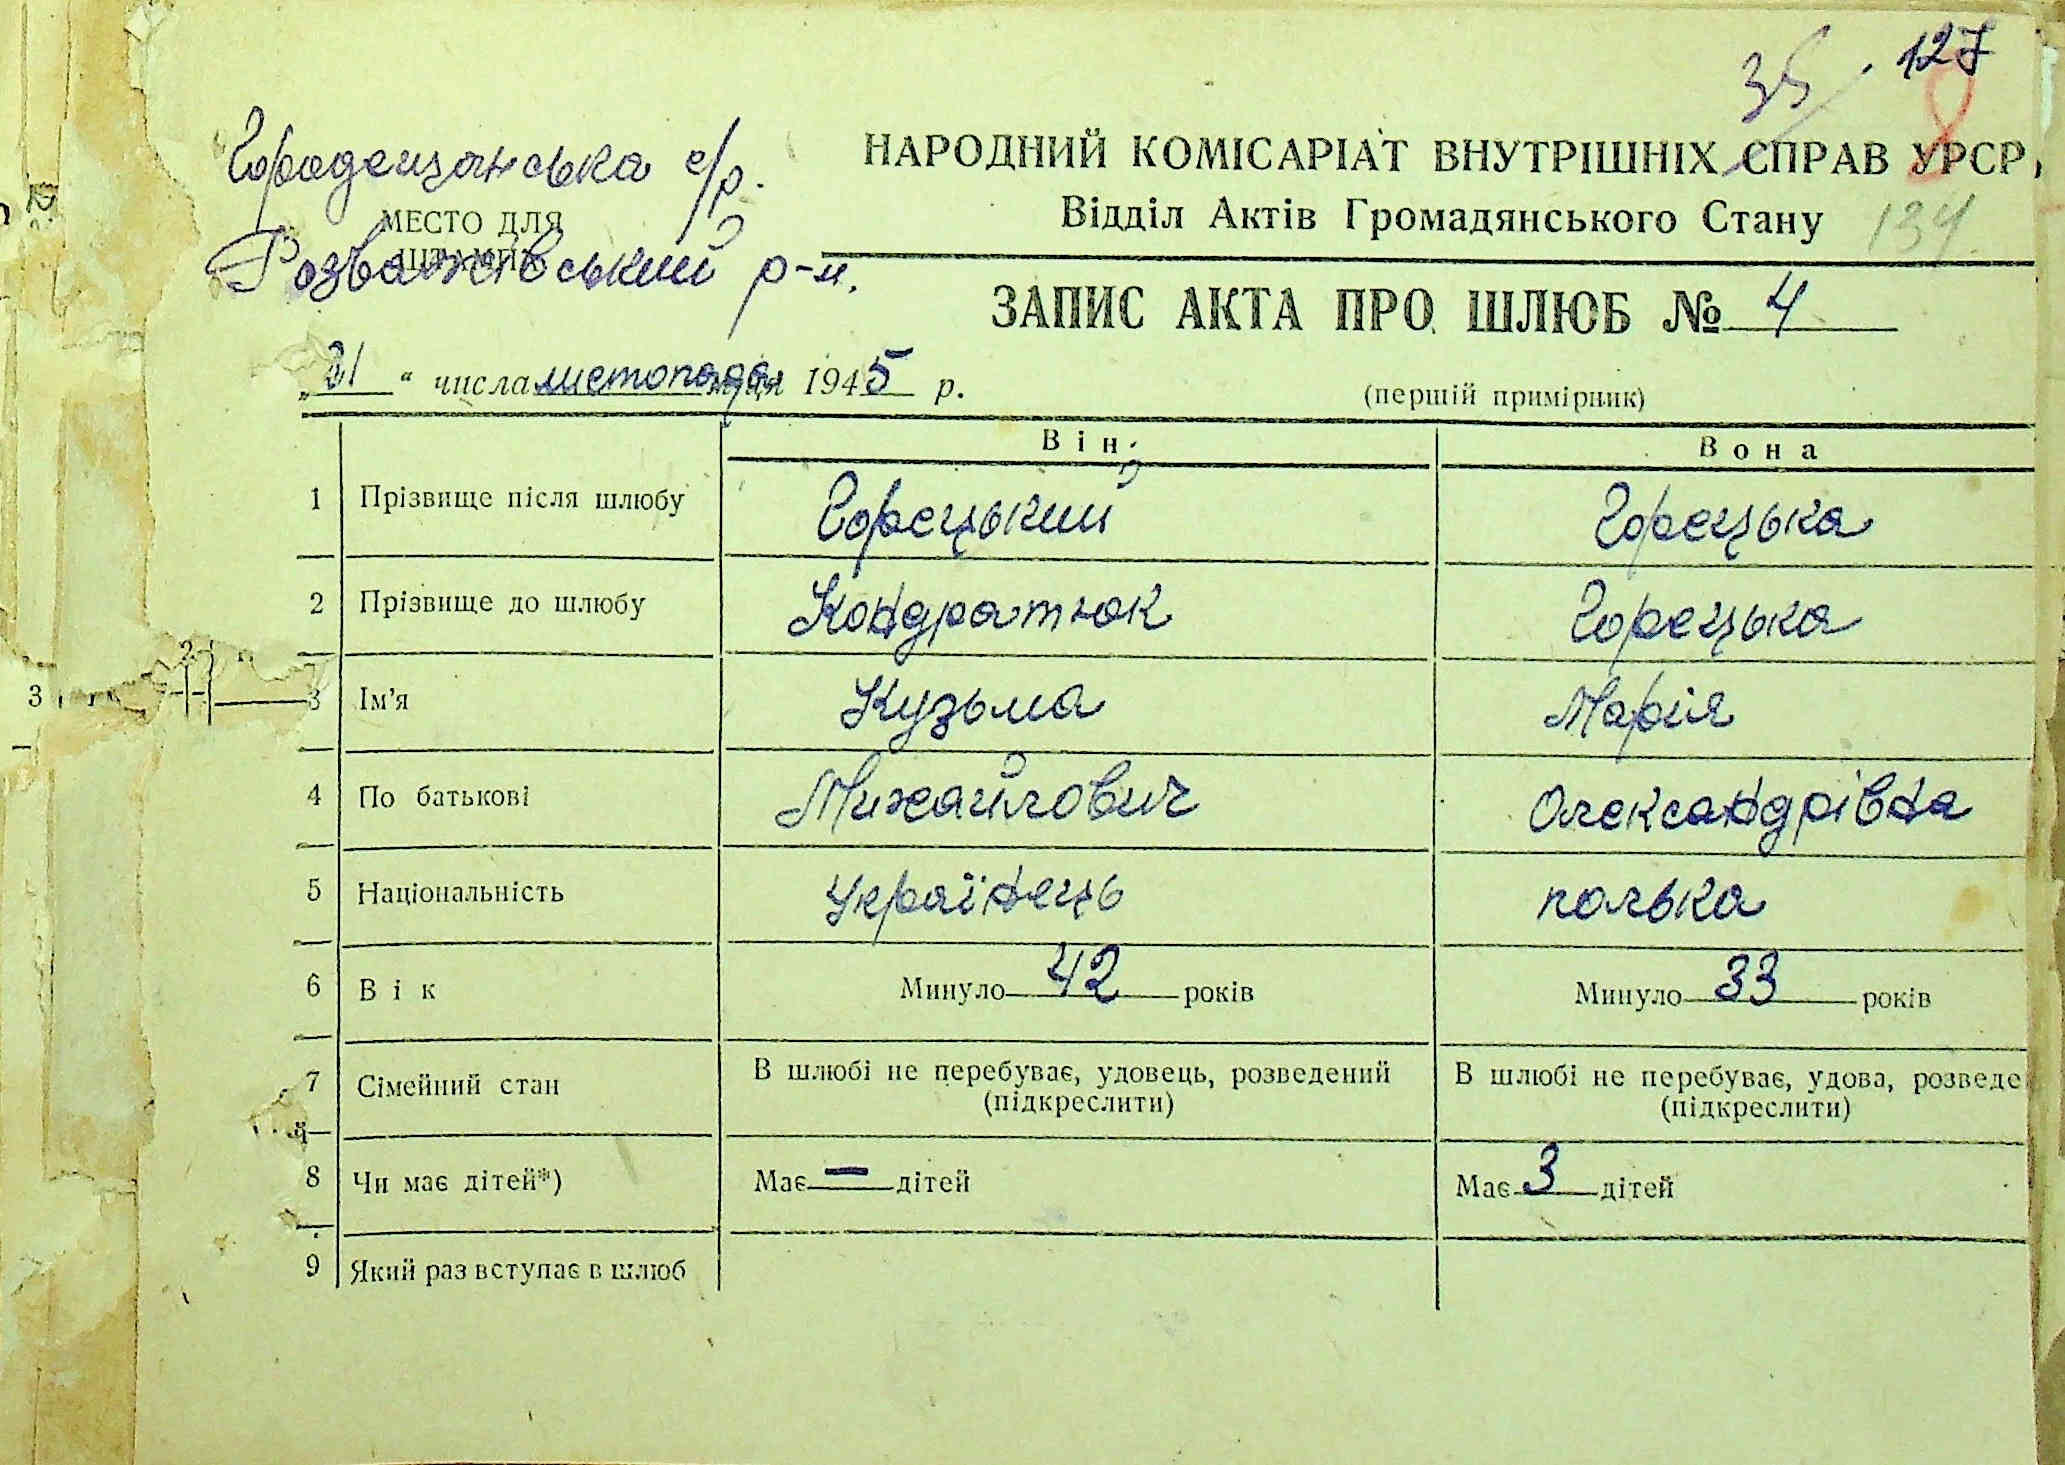 35 127
Городещанська с/р.
НАРОДНИЙ КОМІСАРІАТ ВНУТРІШНІХ СПРАВ УРСР,
МЕСТО ДЛЯ
Відділ Актів Громадянського Стану 134
ШТАМПА
Розважівський р-н.
ЗАПИС АКТА ПРО ШЛЮБ № 4
„21" числа листопада 1945 р.
(перший примірник)
Він Вона
1 Прізвище після шлюбу Горецький Горецька
2 Прізвище до шлюбу Кондратюк Горецька
3 Ім'я Кузьма Марія
4 По батькові Михайлович Олександрівна
5 Національність Українець полька
6 Вік Минуло 42 років Минуло 33 років
7 Сімейний стан В шлюбі не перебуває, удовець, розведений В шлюбі не перебуває, удова, розведе
(підкреслити) (підкреслити)
8 Чи має дітей*) Має — дітей Має 3 дітей
9 Який раз вступає в шлюб